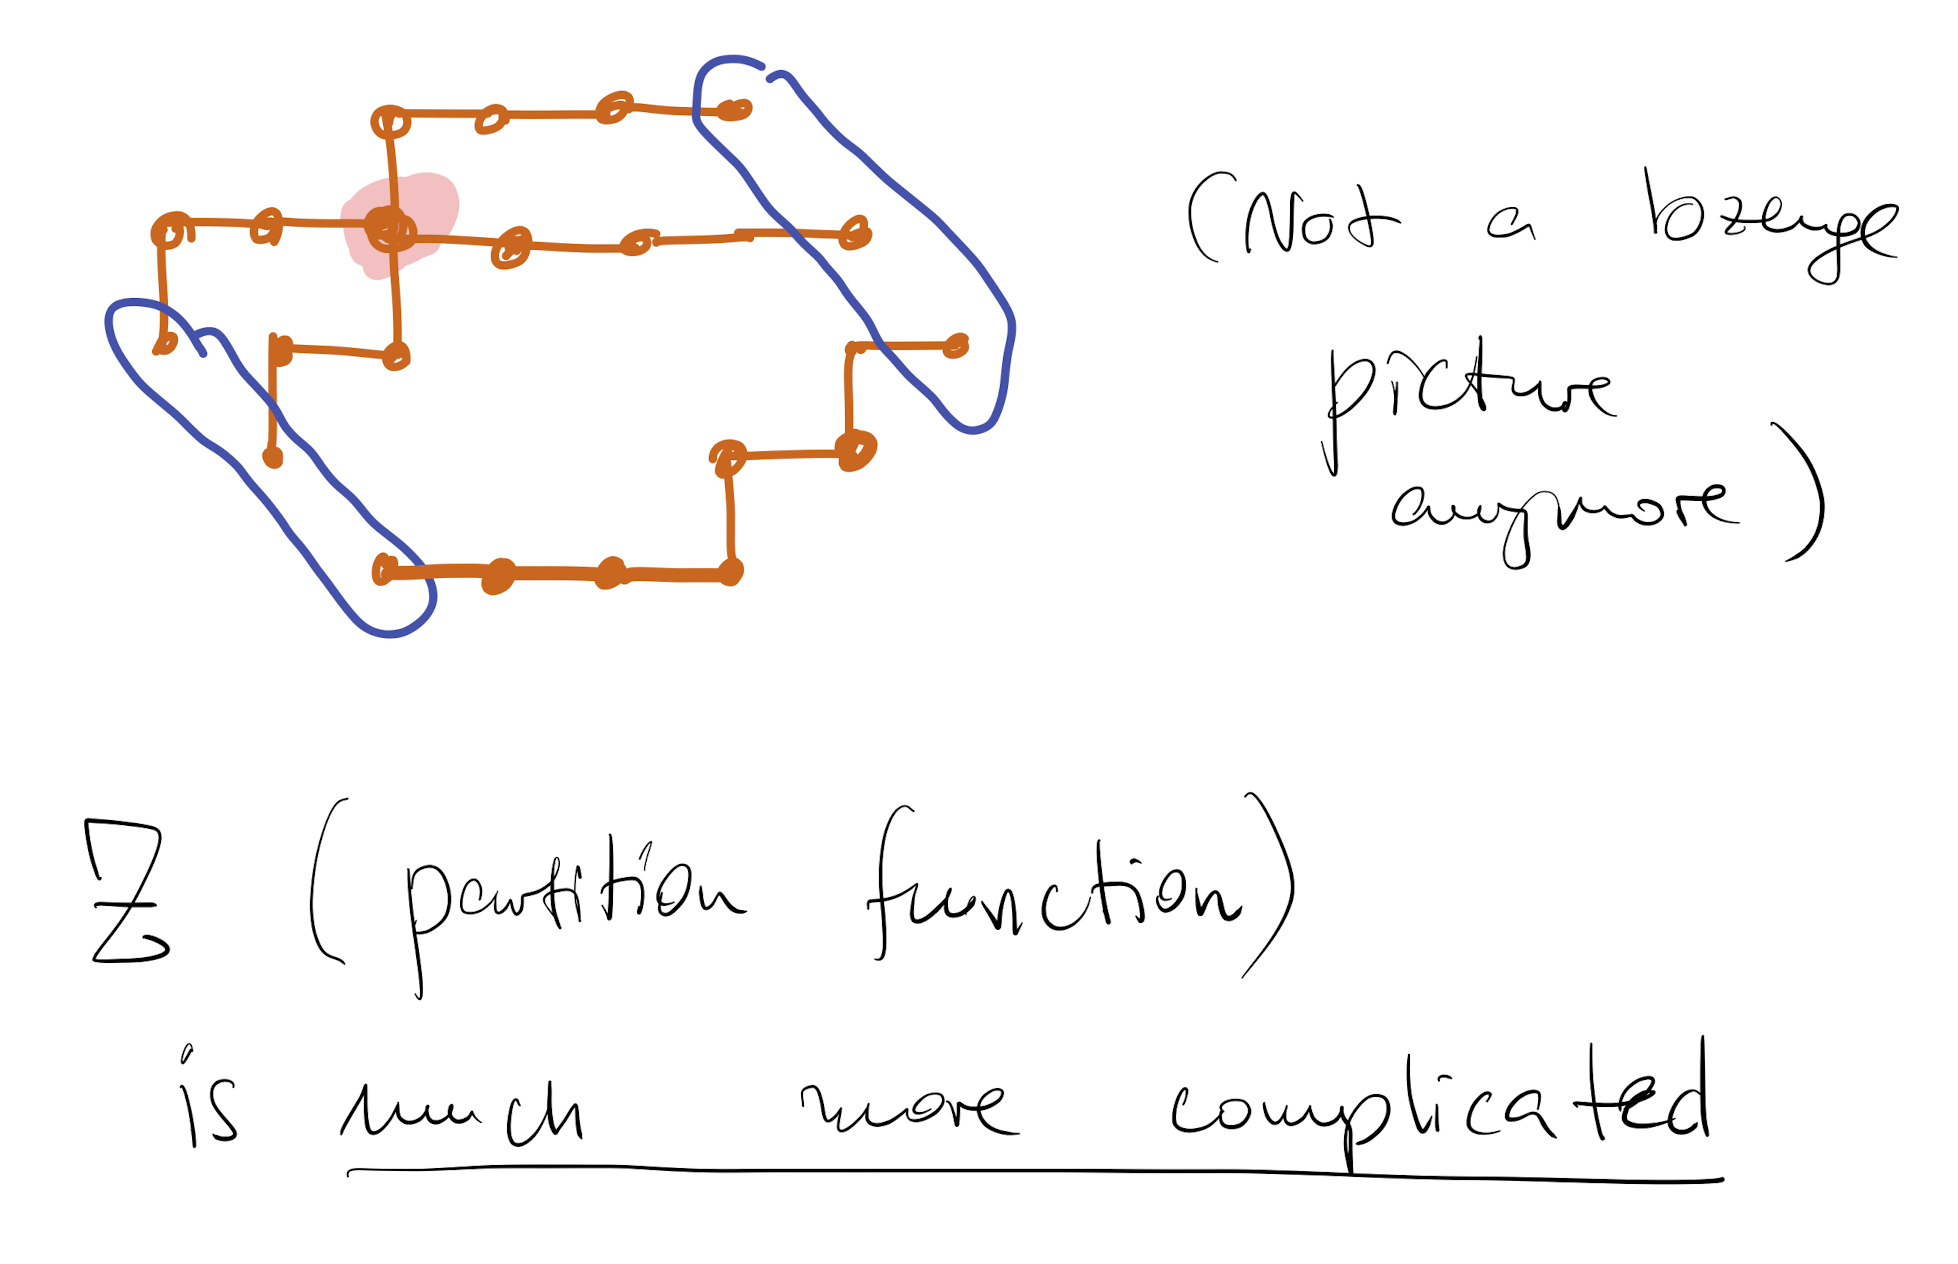 (Not a lozenge
picture
anymore)
Z (partition function)
is much more complicated